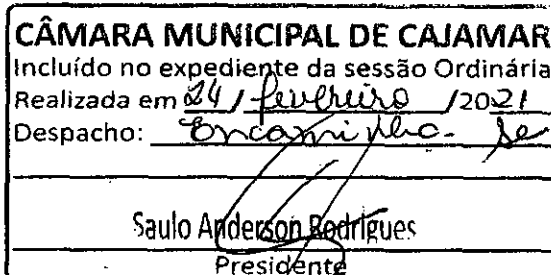 CÂMARA MUNICIPAL DE CAJAMAR
Incluído no expediente da sessão Ordinária
Realizada em 24 / fevereiro /2021
Despacho: Encaminha-se
Saulo Anderson Rodrigues
Presidente